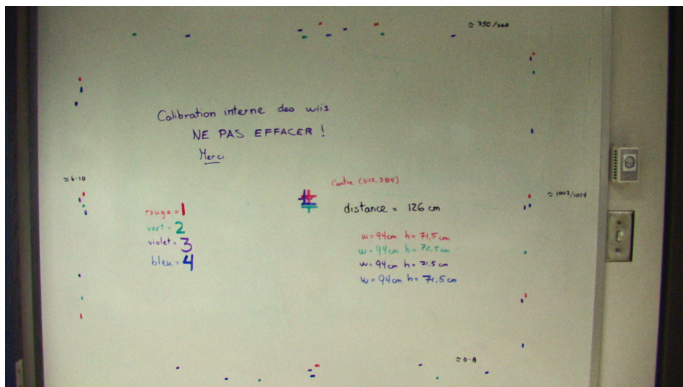 ≈ 750/768
Calibration interne des wiis
NE PAS EFFACER !
Merci
≈ 6-10
Centre (512,384)
≈ 1003/1024
rouge = 1
distance = 126 cm
vert = 2
violet = 3
bleu = 4
w = 94cm h = 71,5cm
w = 94cm h = 72,5cm
w = 94cm h = 72,5cm
w = 94cm h = 72,5cm
≈ 0-8